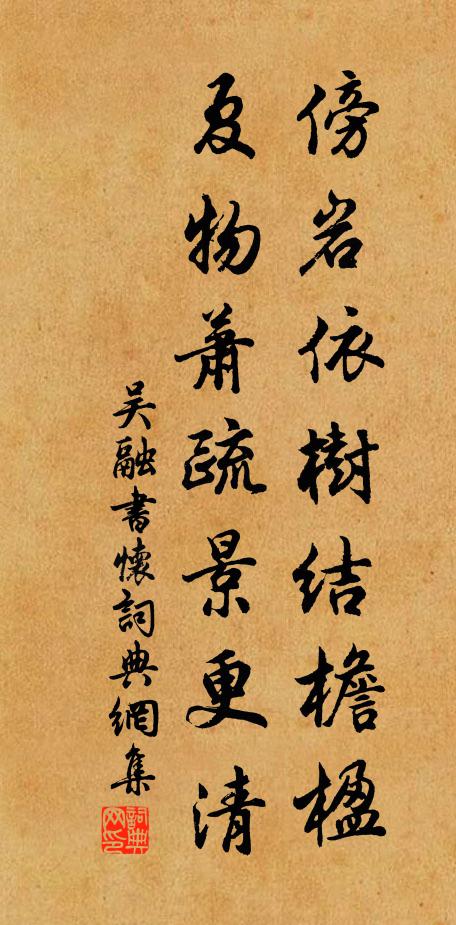 傍岩依樹結檐楹
夏物蕭疏景更清
吴融書懷詞典網集
詞典网印